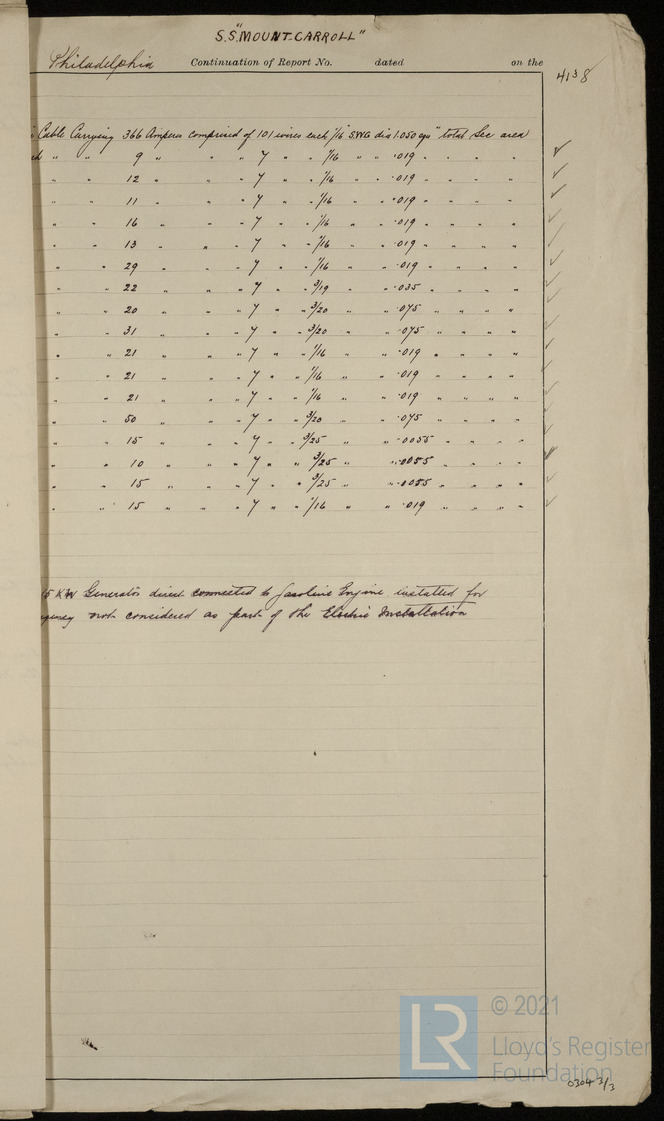 S.S. "MOUNT CARROLL"
Philadelphia Continuation of Report No. dated on the
4138
Cable Carrying 366 Amperes comprised of 101 wires each 1/16 S.W.G dia 1.050 " total Sec area
" " 9 " " " 7 " " 1/16 " " .019 " " " "
" " 12 " " " 7 " " 1/16 " " .019 " " " "
" " 11 " " " 7 " " 1/16 " " .019 " " " "
" " 16 " " " 7 " " 1/16 " " .019 " " " "
" " 13 " " " 7 " " 1/16 " " .019 " " " "
" " 29 " " " 7 " " 1/16 " " .019 " " " "
" " 22 " " " 7 " " 3/19 " " .035 " " " "
" " 20 " " " 7 " " 3/20 " " .075 " " " "
" " 31 " " " 7 " " 3/20 " " .075 " " " "
" " 21 " " " 7 " " 1/16 " " .019 " " " "
" " 21 " " " 7 " " 1/16 " " .019 " " " "
" " 21 " " " 7 " " 1/16 " " .019 " " " "
" " 50 " " " 7 " " 3/20 " " .075 " " " "
" " 15 " " " 7 " " 3/25 " " .0055 " " " "
" " 10 " " " 7 " " 3/25 " " .0055 " " " "
" " 15 " " " 7 " " 3/25 " " .0055 " " " "
" " 15 " " " 7 " " 1/16 " " .019 " " " "
5 KW Generator direct connected to Gasoline Engine installed for
gency not considered as part of the Electric Installation
LR © 2021
Lloyd's Register
Foundation
0304 3/3